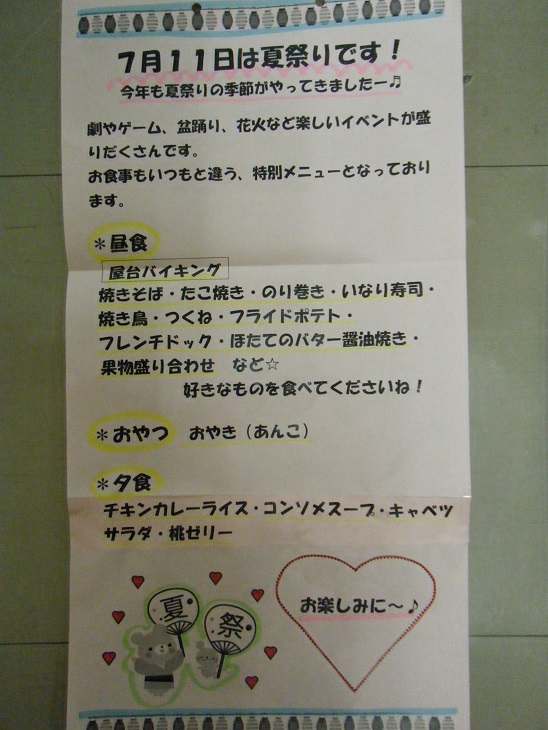 7月11日は夏祭りです!
今年も夏祭りの季節がやってきましたー♫
劇やゲーム、盆踊り、花火など楽しいイベントが盛
りだくさんです。
お食事もいつもと違う、特別メニューとなっており
ます。
＊昼食
屋台バイキング
焼きそば・たこ焼き・のり巻き・いなり寿司・
焼き鳥・つくね・フライドポテト・
フレンチドック・ほたてのバター醤油焼き・
果物盛り合わせ　など☆
好きなものを食べてくださいね!
＊おやつ　おやき（あんこ）
＊夕食
チキンカレーライス・コンソメスープ・キャベツ
サラダ・桃ゼリー
夏
祭
お楽しみに～♪